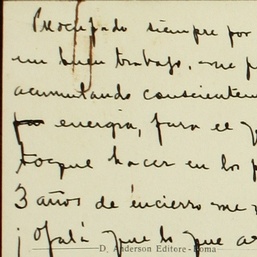 Preocupado siempre por
un buen trabajo, me p
acumulando conscientem
energia, para el q
toque hacer en los p
3 años de encierro me
¡Ojalá que lo que a
D. Anderson Editore - Roma